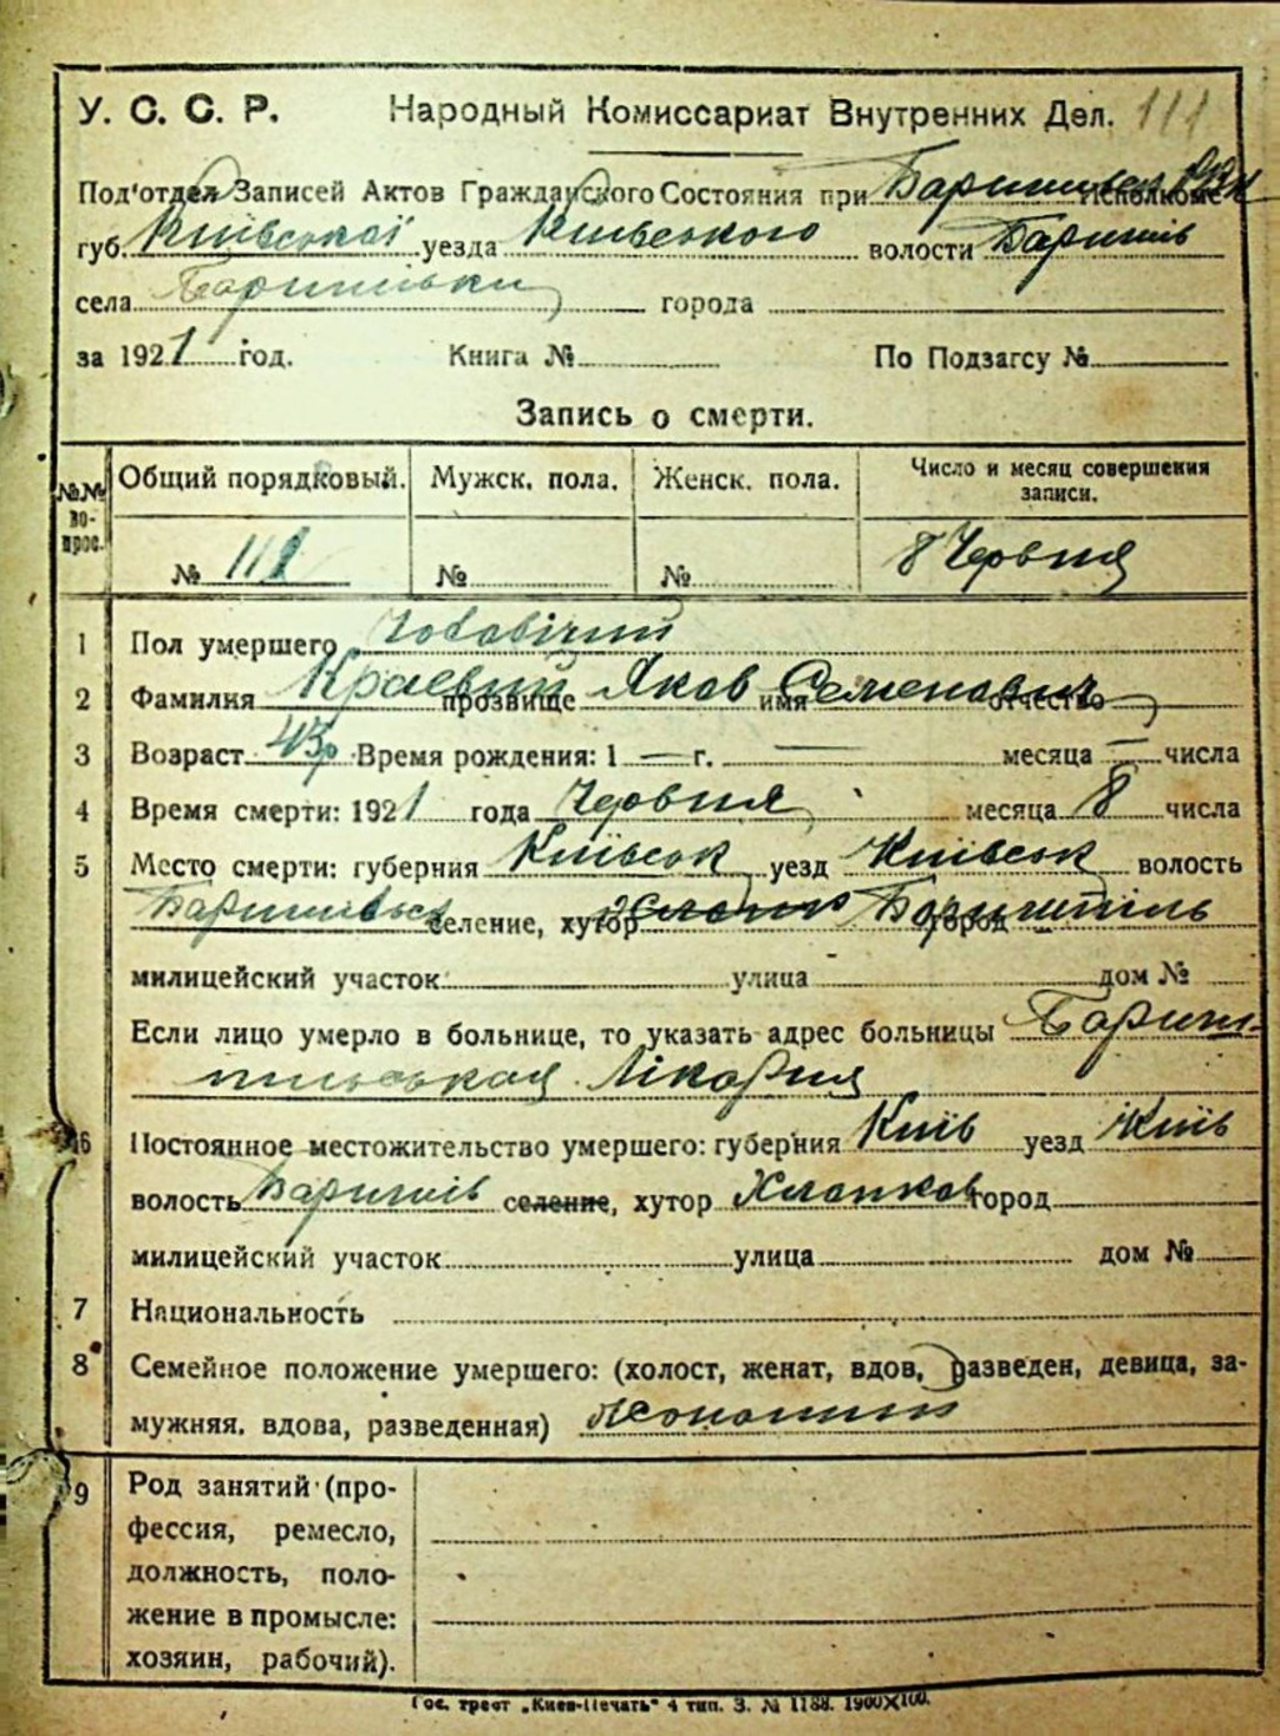 У. С. С. Р. Народный Комиссариат Внутренних Дел. 111
Под'отдел Записей Актов Гражданского Состояния при Исполкоме
губ. Київської уезда Київського волости Баришів
села Баришівки города
за 1921 год. Книга № По Подзагсу №
Запись о смерти.
№№ вопрос. Общий порядковый. Мужск. пола. Женск. пола. Число и месяц совершения записи.
№ 111 № № 8 Червня
1 Пол умершего Чоловічий
2 Фамилия Краевый прозвище Яков имя Семенович отчество
3 Возраст 43 р Время рождения: 1 — г. — месяца — числа
4 Время смерти: 1921 года Червня месяца 8 числа
5 Место смерти: губерния Київськ уезд Київськ волость
селение, хутор город
милицейский участок улица дом №
Если лицо умерло в больнице, то указать адрес больницы
Лікарня
6 Постоянное местожительство умершего: губерния Київ уезд Київ
волость Баришів селение, хутор город
милицейский участок улица дом №
7 Национальность
8 Семейное положение умершего: (холост, женат, вдов, разведен, девица, за-
мужняя, вдова, разведенная) жонатий
9 Род занятий (про-
фессия, ремесло,
должность, поло-
жение в промысле:
хозяин, рабочий).
Гос. трест „Киев-Печать" 4 тип. З. № 1188. 1900Х100.